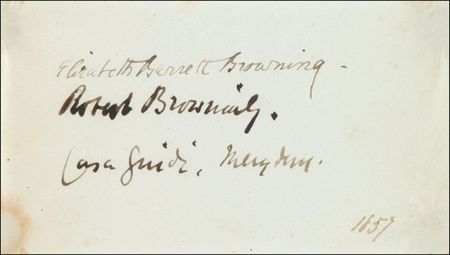 Elizabeth Barrett Browning -
Robert Browning.
Casa Guidi,
1857